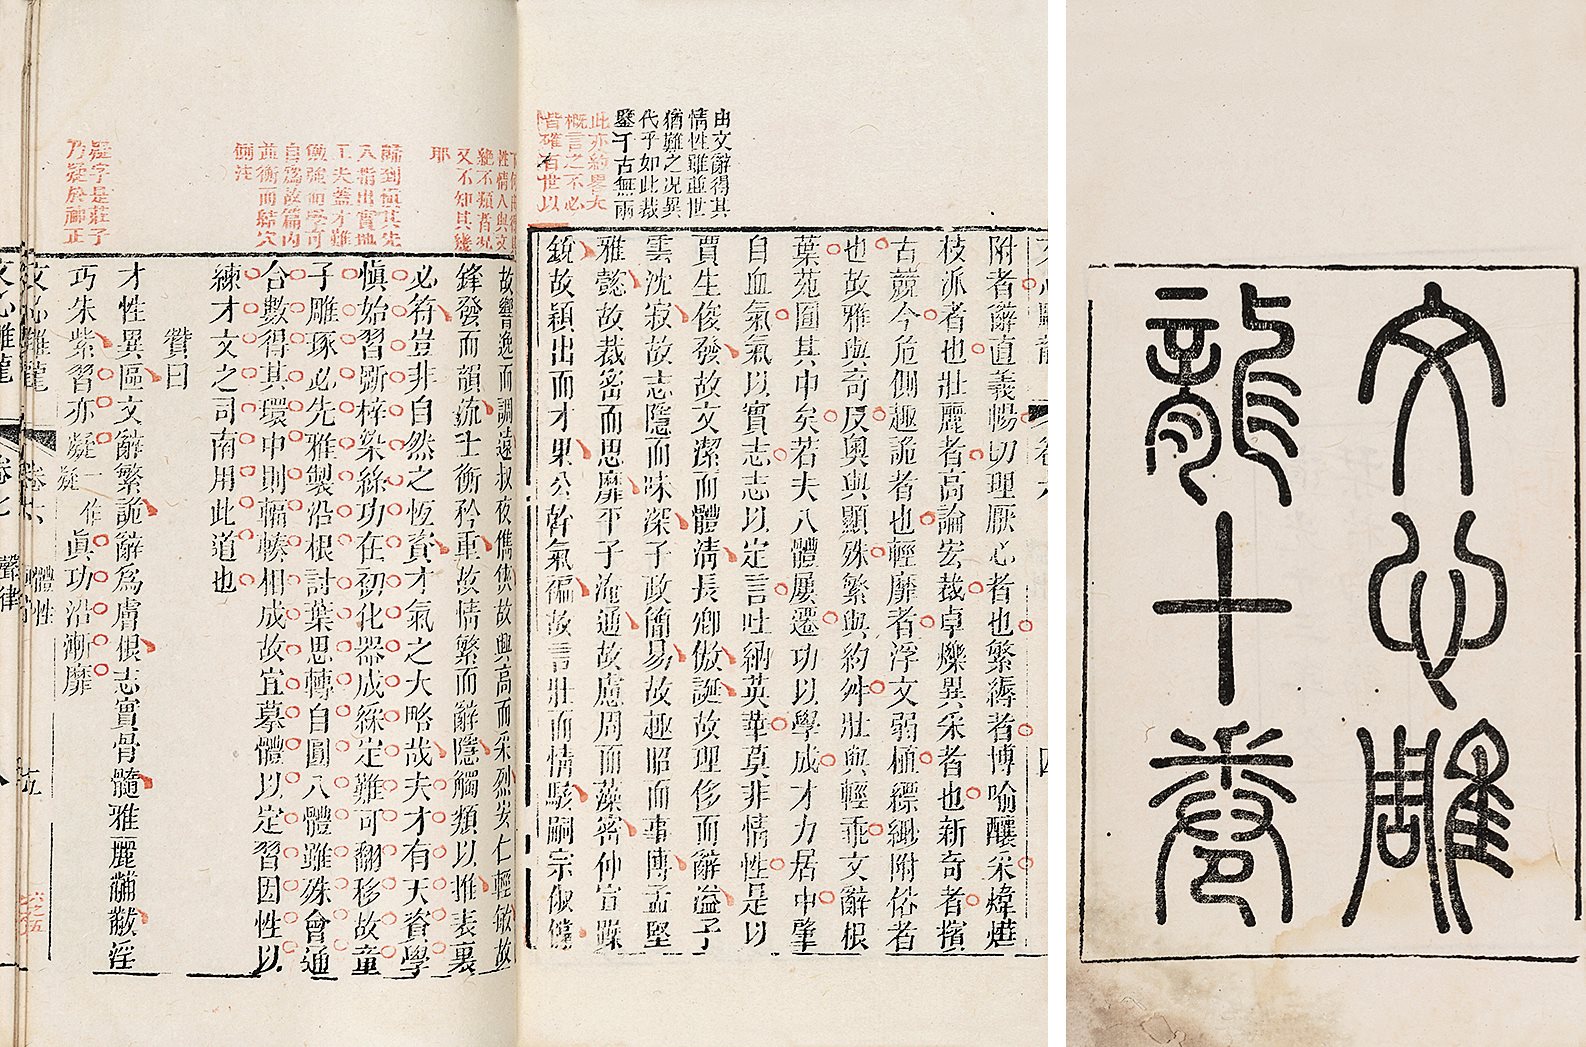 文心雕
龍十卷
由文辭得其
情性雖並世
猶難之况異
代乎如此裁
鑒千古無兩
此亦約畧大
概言之不必
皆確有世以
附者辭直義暢切理厭心者也繁縟者博喻釀采煒燁
枝派者也壯麗者高論宏裁卓爍異采者也新奇者擯
古競今危側趣詭者也輕靡者浮文弱植縹緲附俗者
也故雅與奇反奧與顯殊繁與約舛壯與輕乖文辭根
葉苑囿其中矣若夫八體屢遷功以學成才力居中肇
自血氣氣以實志志以定言吐納英華莫非情性是以
賈生俊發故文潔而體清長卿傲誕故理侈而辭溢子
雲沈寂故志隱而味深子政簡易故趣昭而事博孟堅
雅懿故裁密而思靡平子淹通故慮周而藻密仲宣躁
銳故穎出而才果公幹氣褊故言壯而情駭嗣宗俶儻
性情人與文
絕不類者况
又不知其幾
耶
歸到慎其先
入指出實地
工夫蓋才難
勉強而學可
自為故篇內
並衡而結穴
側注
疑字是莊子
乃疑於神正
故響逸而調遠叔夜儁俠故興高而采烈安仁輕敏故
鋒發而韻流士衡矜重故情繁而辭隱觸類以推表裏
必符豈非自然之恆資才氣之大略哉夫才有天資學
慎始習斲梓染絲功在初化器成綵定難可翻移故童
子雕琢必先雅製沿根討葉思轉自圓八體雖殊會通
合數得其環中則輻輳相成故宜摹體以定習因性以
練才文之司南用此道也
贊曰
才性異區文辭繁詭辭為膚根志實骨髓雅麗黼黻淫
巧朱紫習亦凝一作疑眞功沿漸靡
文心雕龍 卷六 體性 十五
六之五
文心雕龍 卷七 聲律